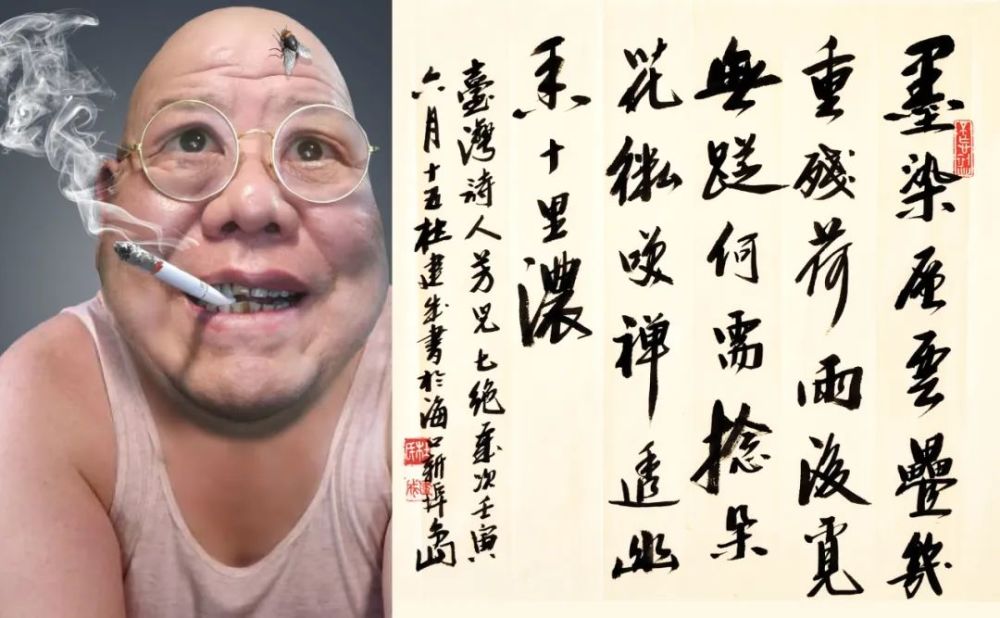 墨染層雲疊幾
重殘荷雨後覓
無蹤何需捻朵
花微笑禪透幽
香十里濃
臺灣詩人芳兄七絕歲次壬寅
六月十五杜建成書於海口新埠島